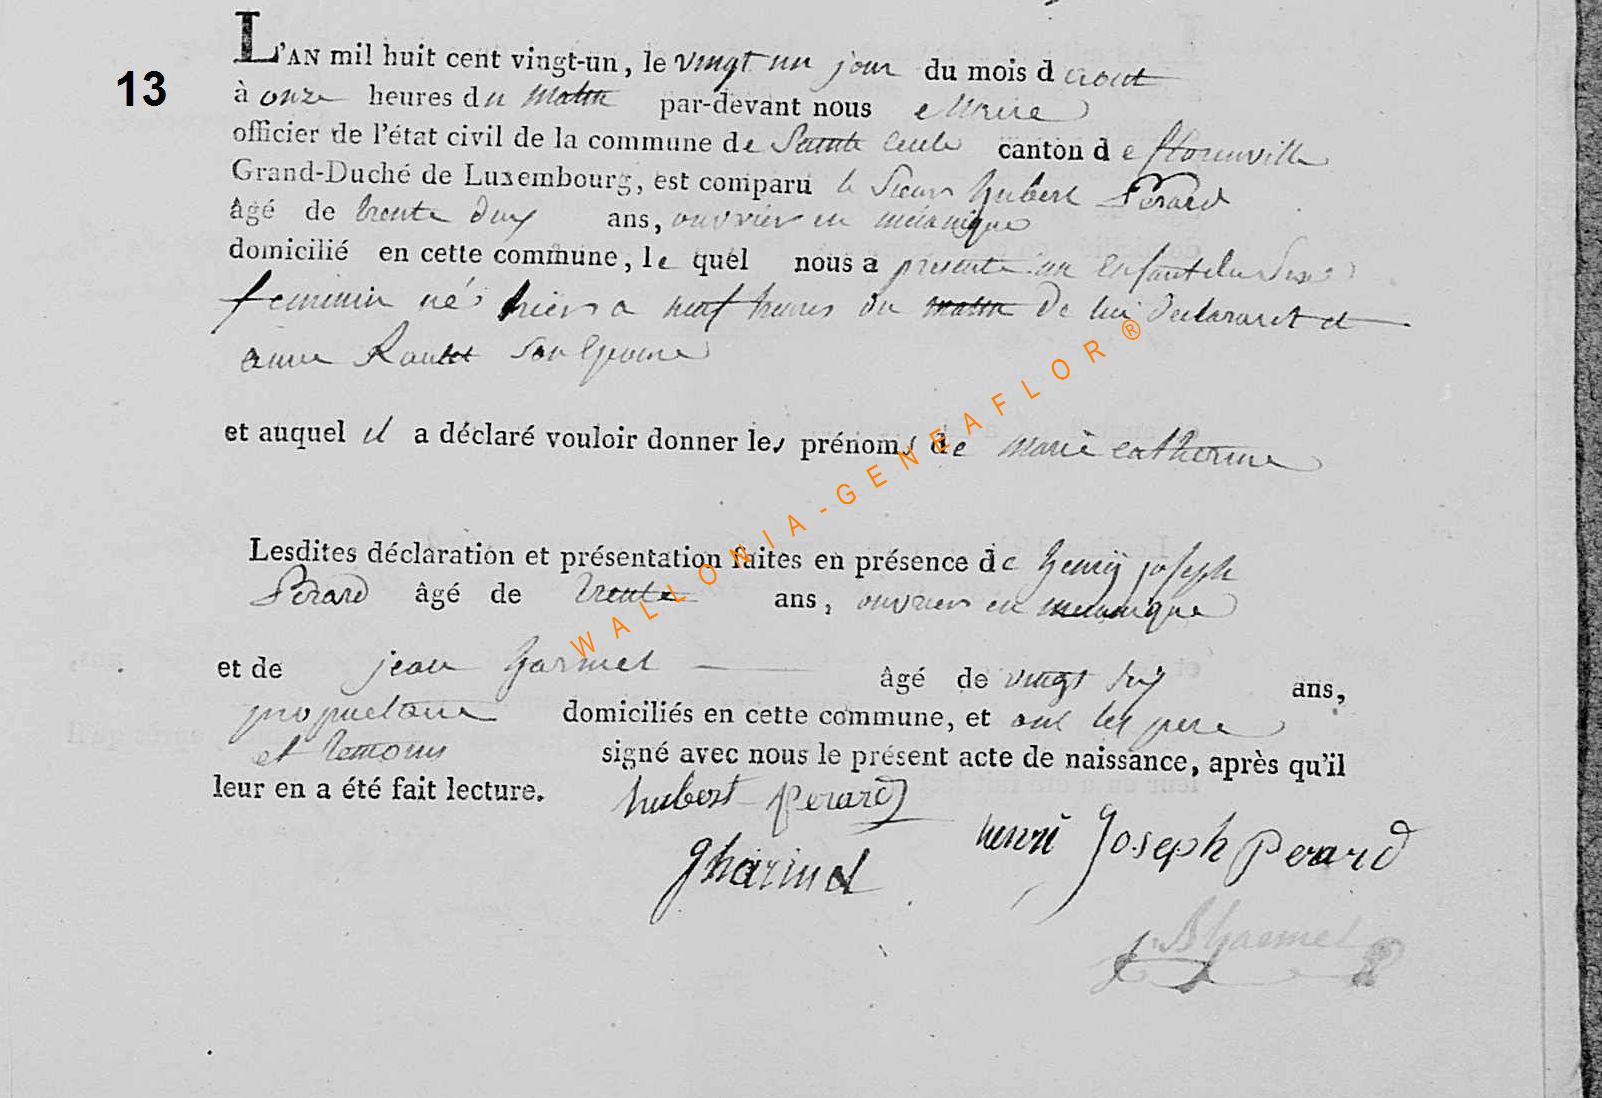 13
L'AN mil huit cent vingt-un, le vingt un jour du mois d'aout
à onze heures du matin par-devant nous Maire
officier de l'état civil de la commune de Sainte Cecile canton de florenville
Grand-Duché de Luxembourg, est comparu le Sieur hubert Pérard
âgé de trente deux ans, ouvrier en mécanique
domicilié en cette commune, le quel nous a présenté un Enfant du Sexe
feminin né hier a neuf heures du matin de lui declarant et
anne Raulet Son Epouse
et auquel il a déclaré vouloir donner les prénoms de marie catherine
Lesdites déclaration et présentation faites en présence de henry joseph
Pérard âgé de trente ans, ouvrier en mecanique
et de jean harmel âgé de vingt six ans,
propriétaire domiciliés en cette commune, et ont les pere
et temoins signé avec nous le présent acte de naissance, après qu'il
leur en a été fait lecture.
hubert perard
henri Joseph perard
J harmel
harmel
WALLONIA-GENEAFLOR®